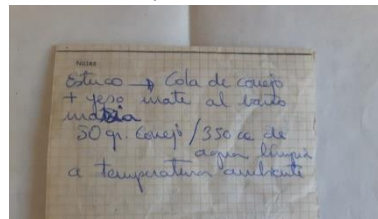 Notas
Estuco → Cola de conejo
+ yeso mate al baño
maría
50 gr. Conejo / 350 cc de
agua limpia
a temperatura ambiente